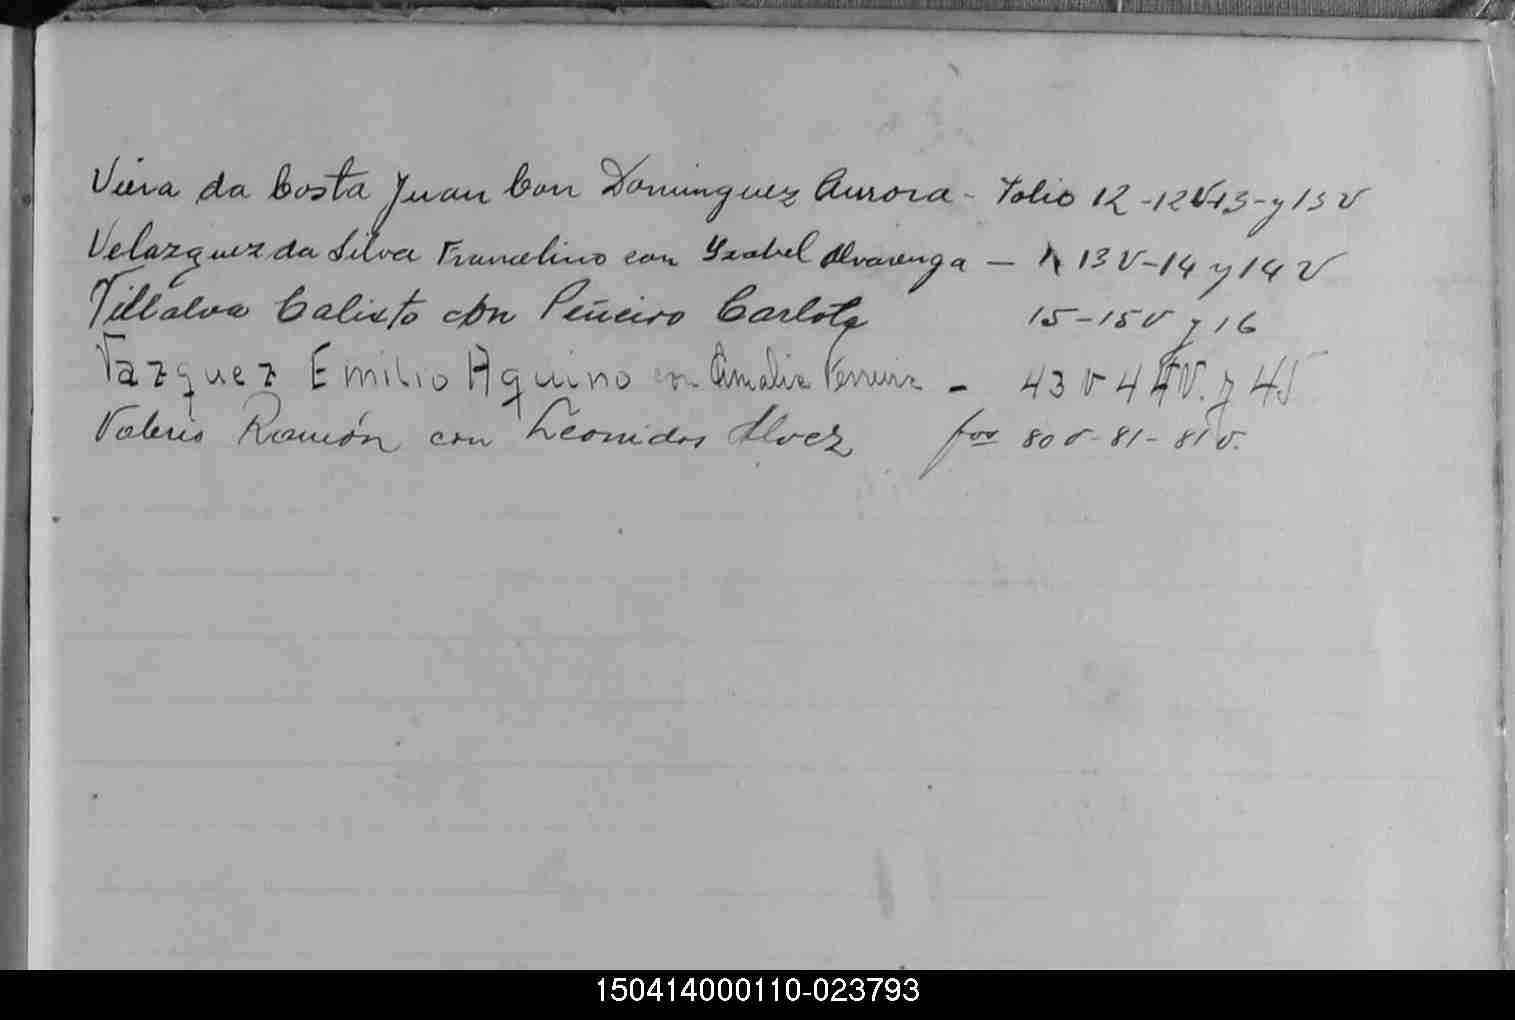 Viera da Costa Juan Con Dominguez Aurora - Folio 12 - 12V 13 - y 13 V
Velazquez da Silva Francelino con Ysabel Alvarenga - 13 V - 14 y 14 V
Villalva Calixto con Peñeiro Carlota 15 - 15 V y 16
Vazquez Emilio Aquino con Amalia Ferreira - 43 v 44 V. y 45
Valerio Ramón con Leonidas Alvez fos 80 v - 81 - 81 v.
150414000110-023793